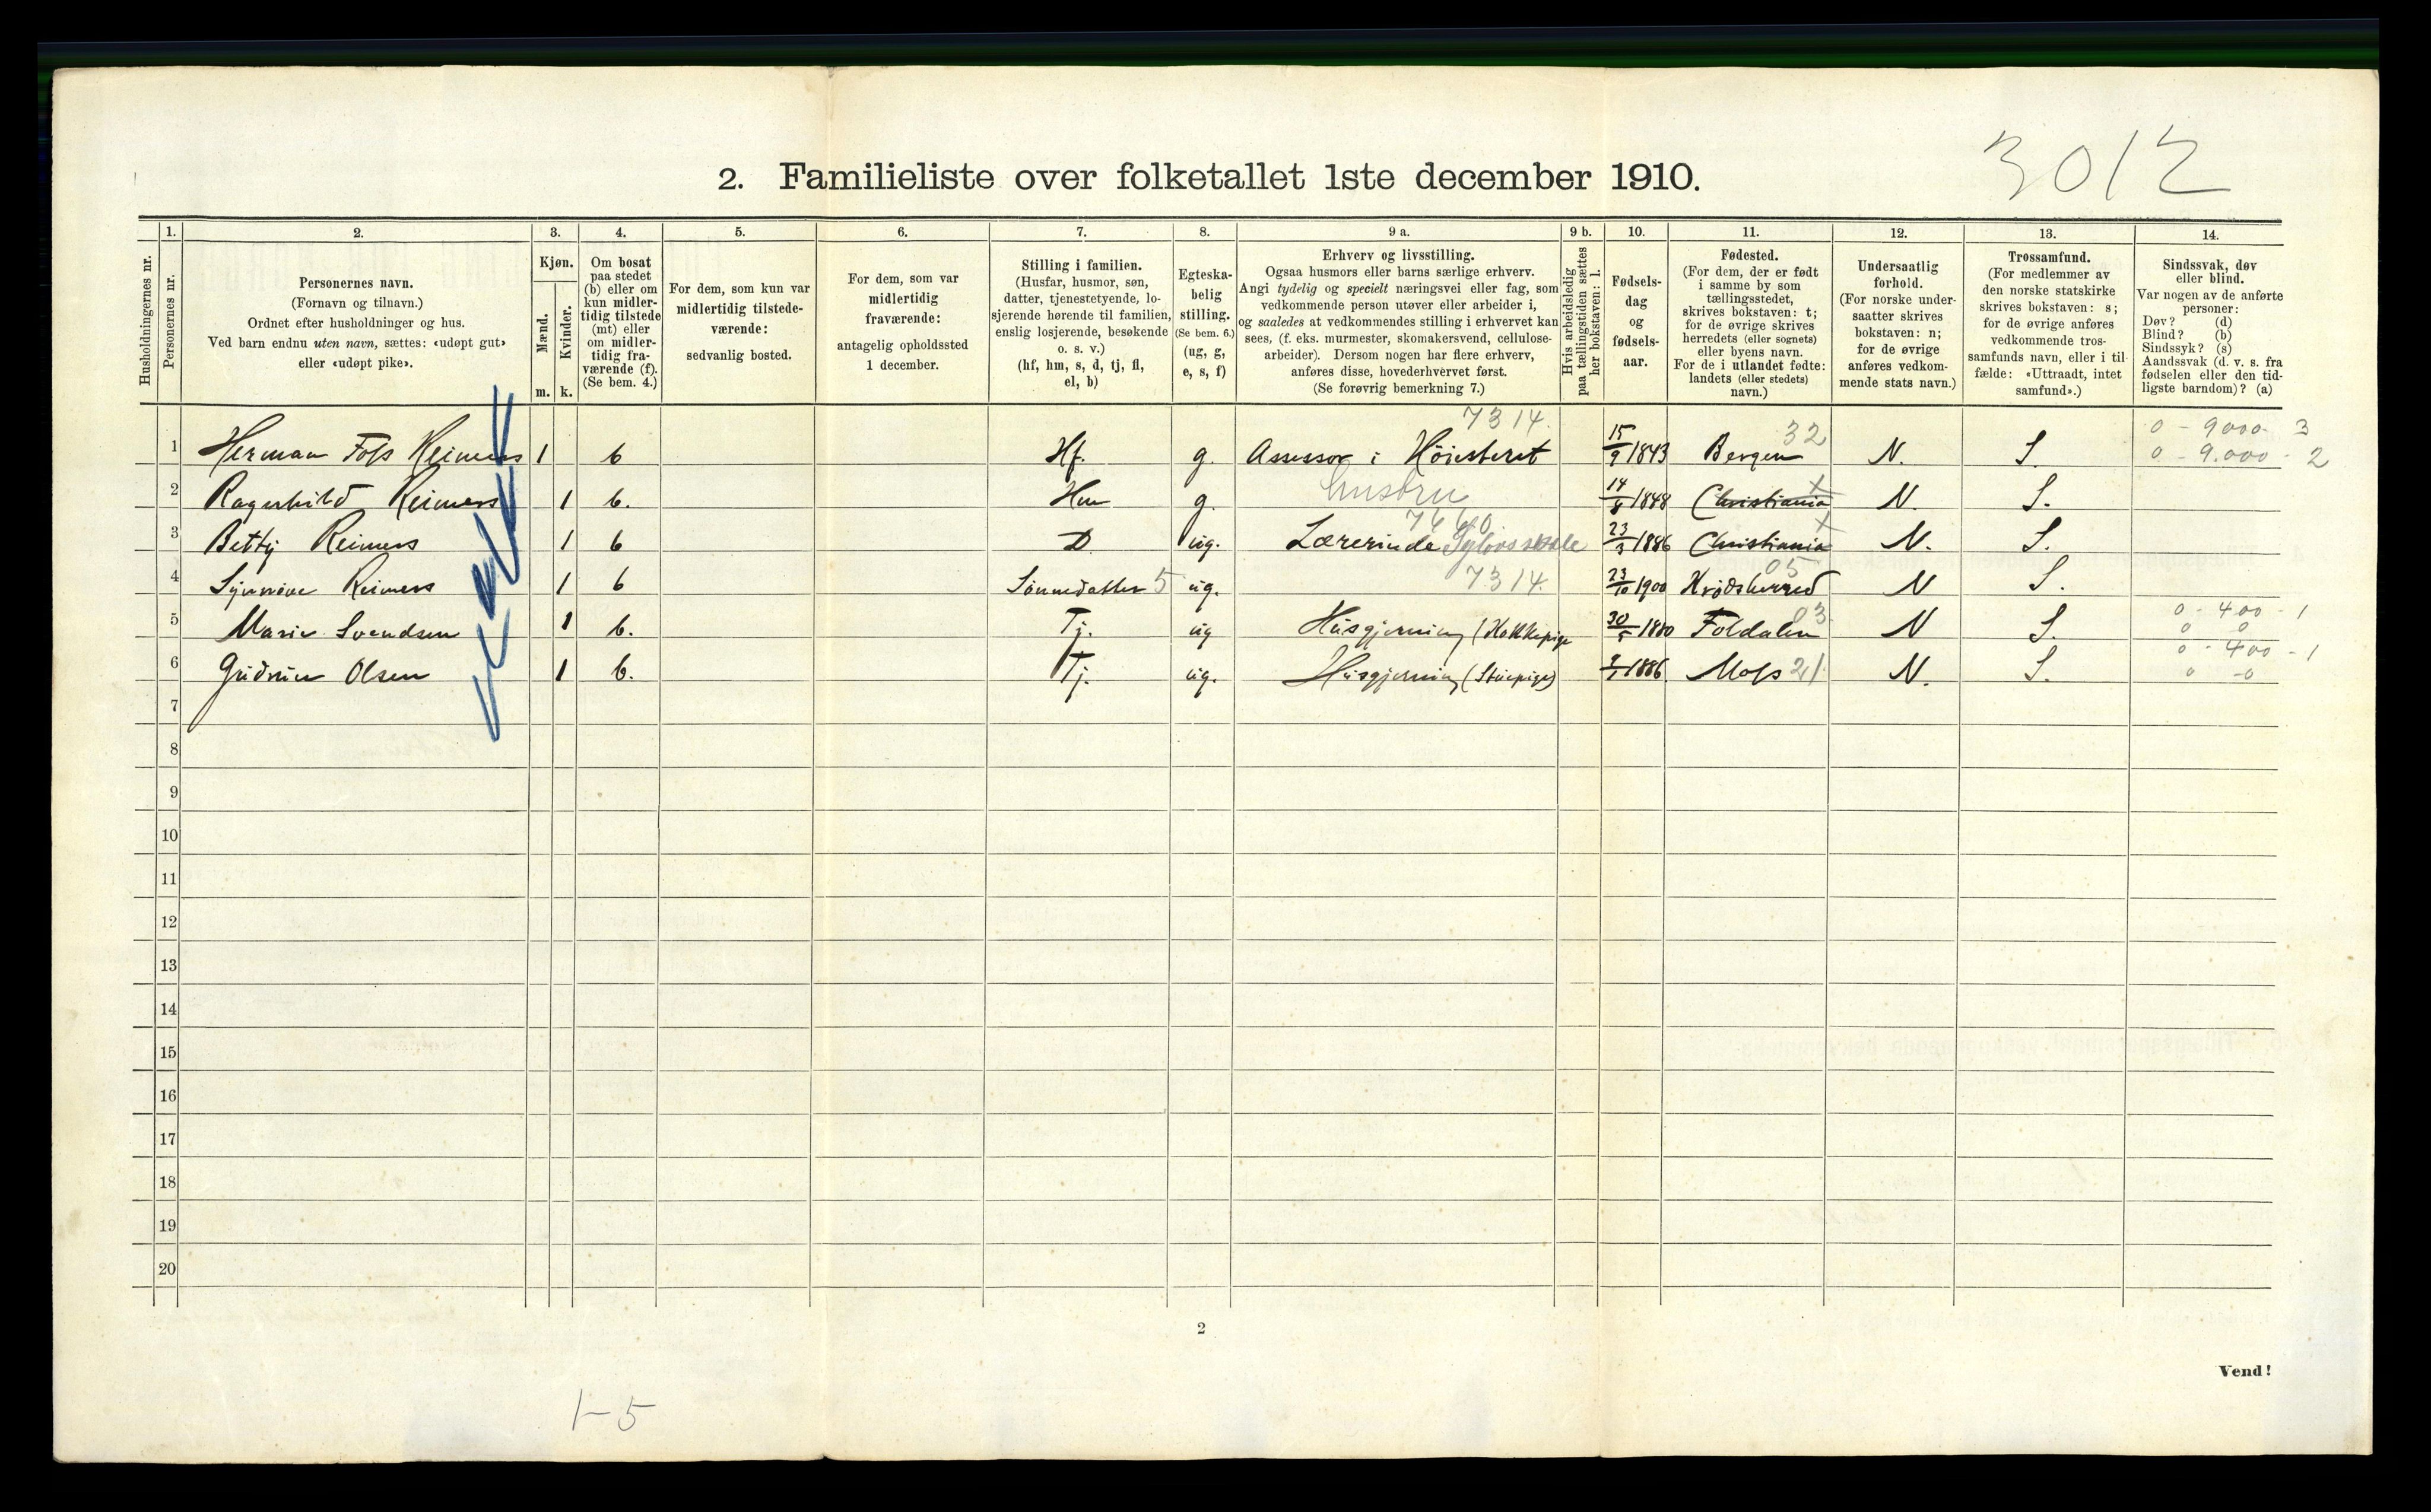 3012
2. Familieliste over folketallet 1ste december 1910.
Husholdningernes nr.
1.
Personernes nr.
2.
Personernes navn.
(Fornavn og tilnavn.)
Ordnet efter husholdninger og hus.
Ved barn endnu uten navn, sættes: «udøpt gut»
eller «udøpt pike».
3.
Kjøn.
Mænd.
Kvinder.
m. k.
4.
Om bosat
paa stedet
(b) eller om
kun midler-
tidig tilstede
(mt) eller
om midler-
tidig fra-
værende (f).
(Se bem. 4.)
5.
For dem, som kun var
midlertidig tilstede-
værende:
sedvanlig bosted.
6.
For dem, som var
midlertidig
fraværende:
antagelig opholdssted
1 december.
7.
Stilling i familien.
(Husfar, husmor, søn,
datter, tjenestetyende, lo-
sjerende hørende til familien,
enslig losjerende, besøkende
o. s. v.)
(hf, hm, s, d, tj, fl,
el, b)
8.
Egteska-
belig
stilling.
(Se bem. 6.)
(ug, g,
e, s, f)
9 a.
Erhverv og livsstilling.
Ogsaa husmors eller barns særlige erhverv.
Angi tydelig og specielt næringsvei eller fag, som
vedkommende person utøver eller arbeider i,
og saaledes at vedkommendes stilling i erhvervet kan
sees, (f. eks. murmester, skomakersvend, cellulose-
arbeider). Dersom nogen har flere erhverv,
anføres disse, hovederhvervet først.
(Se forøvrig bemerkning 7.)
9 b.
Hvis arbeidsledig
paa tællingstiden sættes
her bokstaven: l.
10.
Fødsels-
dag
og
fødsels-
aar.
11.
Fødested.
(For dem, der er født
i samme by som
tællingsstedet,
skrives bokstaven: t;
for de øvrige skrives
herredets (eller sognets)
eller byens navn.
For de i utlandet fødte:
landets (eller stedets)
navn.)
12.
Undersaatlig
forhold.
(For norske under-
saatter skrives
bokstaven: n;
for de øvrige
anføres vedkom-
mende stats navn.)
13.
Trossamfund.
(For medlemmer av
den norske statskirke
skrives bokstaven: s;
for de øvrige anføres
vedkommende tros-
samfunds navn, eller i til-
fælde: «Uttraadt, intet
samfund».)
14.
Sindssvak, døv
eller blind.
Var nogen av de anførte
personer:
Døv? (d)
Blind? (b)
Sindssyk? (s)
Aandssvak (d. v. s. fra
fødselen eller den tid-
ligste barndom)? (a)
7314. 32 0 - 9000- 3
1 Herman Foss Reimers 1 b Hf. g. Assessor i Höiesteret 15/9 1843 Bergen N. S. 0 - 9.000 - 2
2 Ragnhild Reimers 1 b. Hm g. hustru 14/ 1848 Christiania N. S.
3 Betty Reimers 1 b D ug. Lærerinde 23/3 1886 Christiania N. S.
4 Synnöve Reimers 1 b Sönnedatter 5 ug. 7314. 23/10 1900 Krödsherred 05 N S.
5 Marie Svendsen 1 b. Tj. ug Husgjerning (Kokkepige 30/5 1880 Foldalen 03 N S. 0 - 400 - 1
0 0
6 Gudrun Olsen 1 b. Tj. ug. Husgjerning (Stuepige) 1886 Moss 21 N. S. 0 - 400 - 1
0 - 0
7
8
9
10
11
12
13
14
15
16
17
18
19
20
2
Vend!
1-5